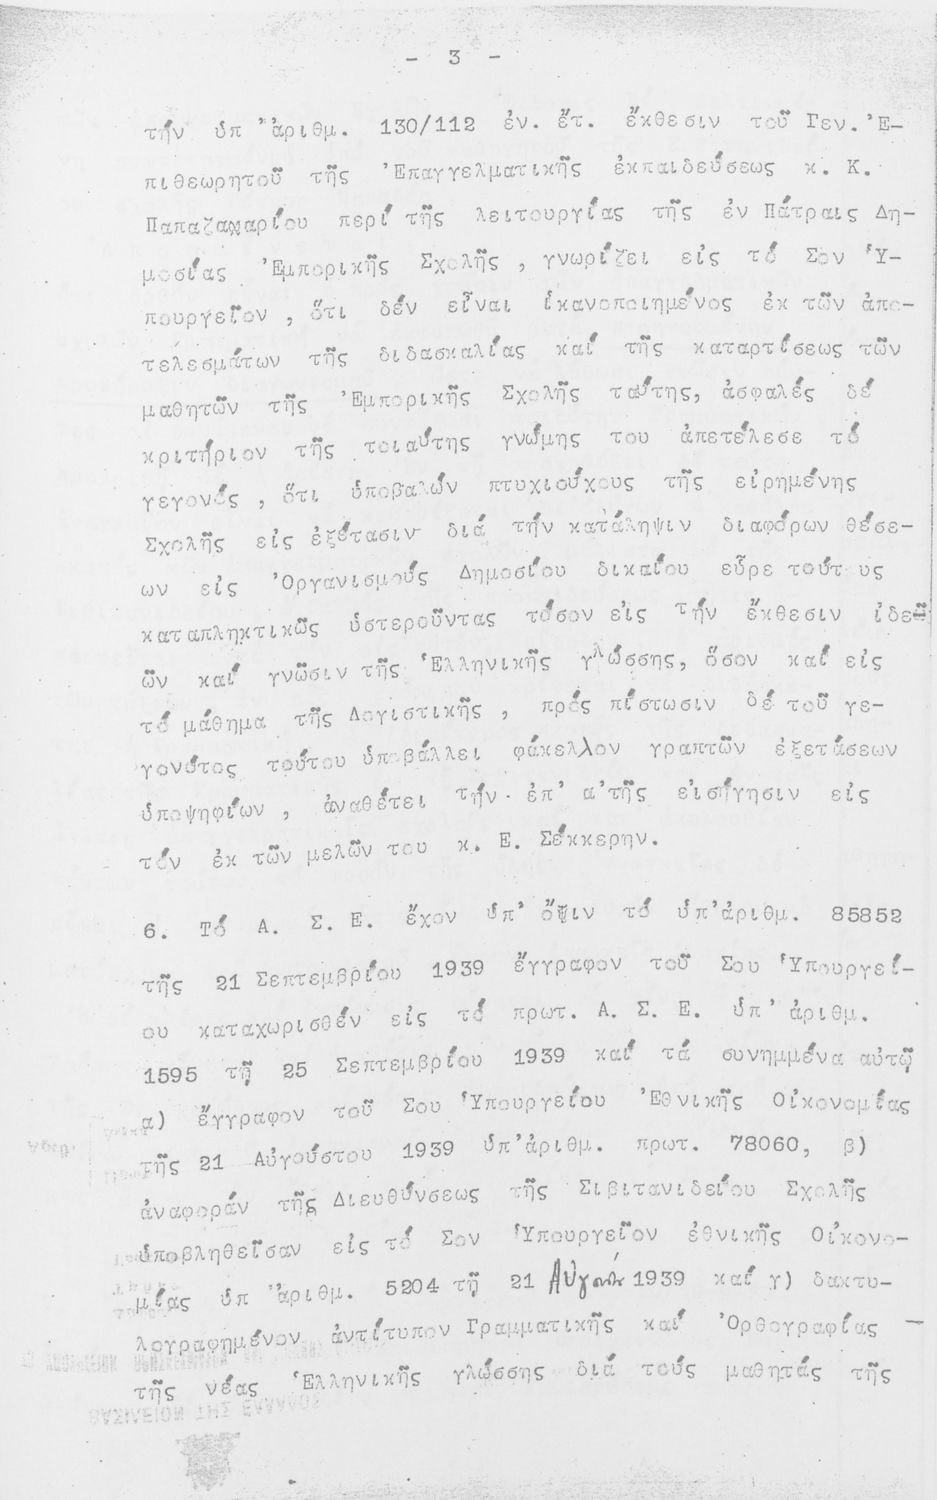 - 3 -
τήν ὑπ'ἀριθμ. 130/112 ἐν. ἔτ. ἔκθεσιν τοῦ Γεν.'Ε-
πιθεωρητοῦ τῆς 'Επαγγελματικῆς ἐκπαιδεύσεως κ. Κ.
Παπαζαχαρίου περί τῆς λειτουργίας τῆς ἐν Πάτραις Δη-
μοσίας 'Εμπορικῆς Σχολῆς , γνωρίζει εἰς τό Σον 'Υ-
πουργεῖον , ὅτι δέν εἶναι ἱκανοποιημένος ἐκ τῶν ἀπο-
τελεσμάτων τῆς διδασκαλίας καί τῆς καταρτίσεως τῶν
μαθητῶν τῆς 'Εμπορικῆς Σχολῆς ταύτης, ἀσφαλές δέ
κριτήριον τῆς τοιαύτης γνώμης του ἀπετέλεσε τό
γεγονός , ὅτι ὑποβαλών πτυχιούχους τῆς εἰρημένης
Σχολῆς εἰς ἐξέτασιν διά τήν κατάληψιν διαφόρων θέσε-
ων εἰς 'Οργανισμούς Δημοσίου δικαίου εὗρε τούτους
καταπληκτικῶς ὑστεροῦντας τόσον εἰς τήν ἔκθεσιν ἰδεῶ
ῶν καί γνῶσιν τῆς 'Ελληνικῆς γλώσσης, ὅσον καί εἰς
τό μάθημα τῆς Λογιστικῆς , πρός πίστωσιν δέ τοῦ γε-
γονότος τούτου ὑποβάλλει φάκελλον γραπτῶν ἐξετάσεων
ὑποψηφίων , ἀναθέτει τήν ἐπ' α'τῆς εἰσήγησιν εἰς
τόν ἐκ τῶν μελῶν του κ. Ε. Σέκκερην.
6. Τό Α. Σ. Ε. ἔχον ὑπ' ὄψιν τό ὑπ'ἀριθμ. 85852
τῆς 21 Σεπτεμβρίου 1939 ἔγγραφον τοῦ Σου 'Υπουργεί-
ου καταχωρισθέν εἰς τό πρωτ. Α. Σ. Ε. ὑπ'ἀριθμ.
1595 τῇ 25 Σεπτεμβρίου 1939 καί τά συνημμένα αὐτῷ
α) ἔγγραφον τοῦ Σου 'Υπουργείου 'Εθνικῆς Οἰκονομίας
τῆς 21 Αὐγούστου 1939 ὑπ'ἀριθμ. πρωτ. 78060, β)
ἀναφοράν τῆς Διευθύνσεως τῆς Σιβιτανιδείου Σχολῆς
ὑποβληθεῖσαν εἰς τό Σον 'Υπουργεῖον ἐθνικῆς Οἰκονο-
μίας ὑπ'ἀριθμ. 5204 τῇ 21 1939 καί γ) δακτυ-
λογραφημένον ἀντίτυπον Γραμματικῆς καί 'Ορθογραφίας -
τῆς νέας 'Ελληνικῆς γλώσσης διά τούς μαθητάς τῆς
ΒΑΣΙΛΕΙΟΝ ΤΗΣ ΕΛΛΑΔΟΣ